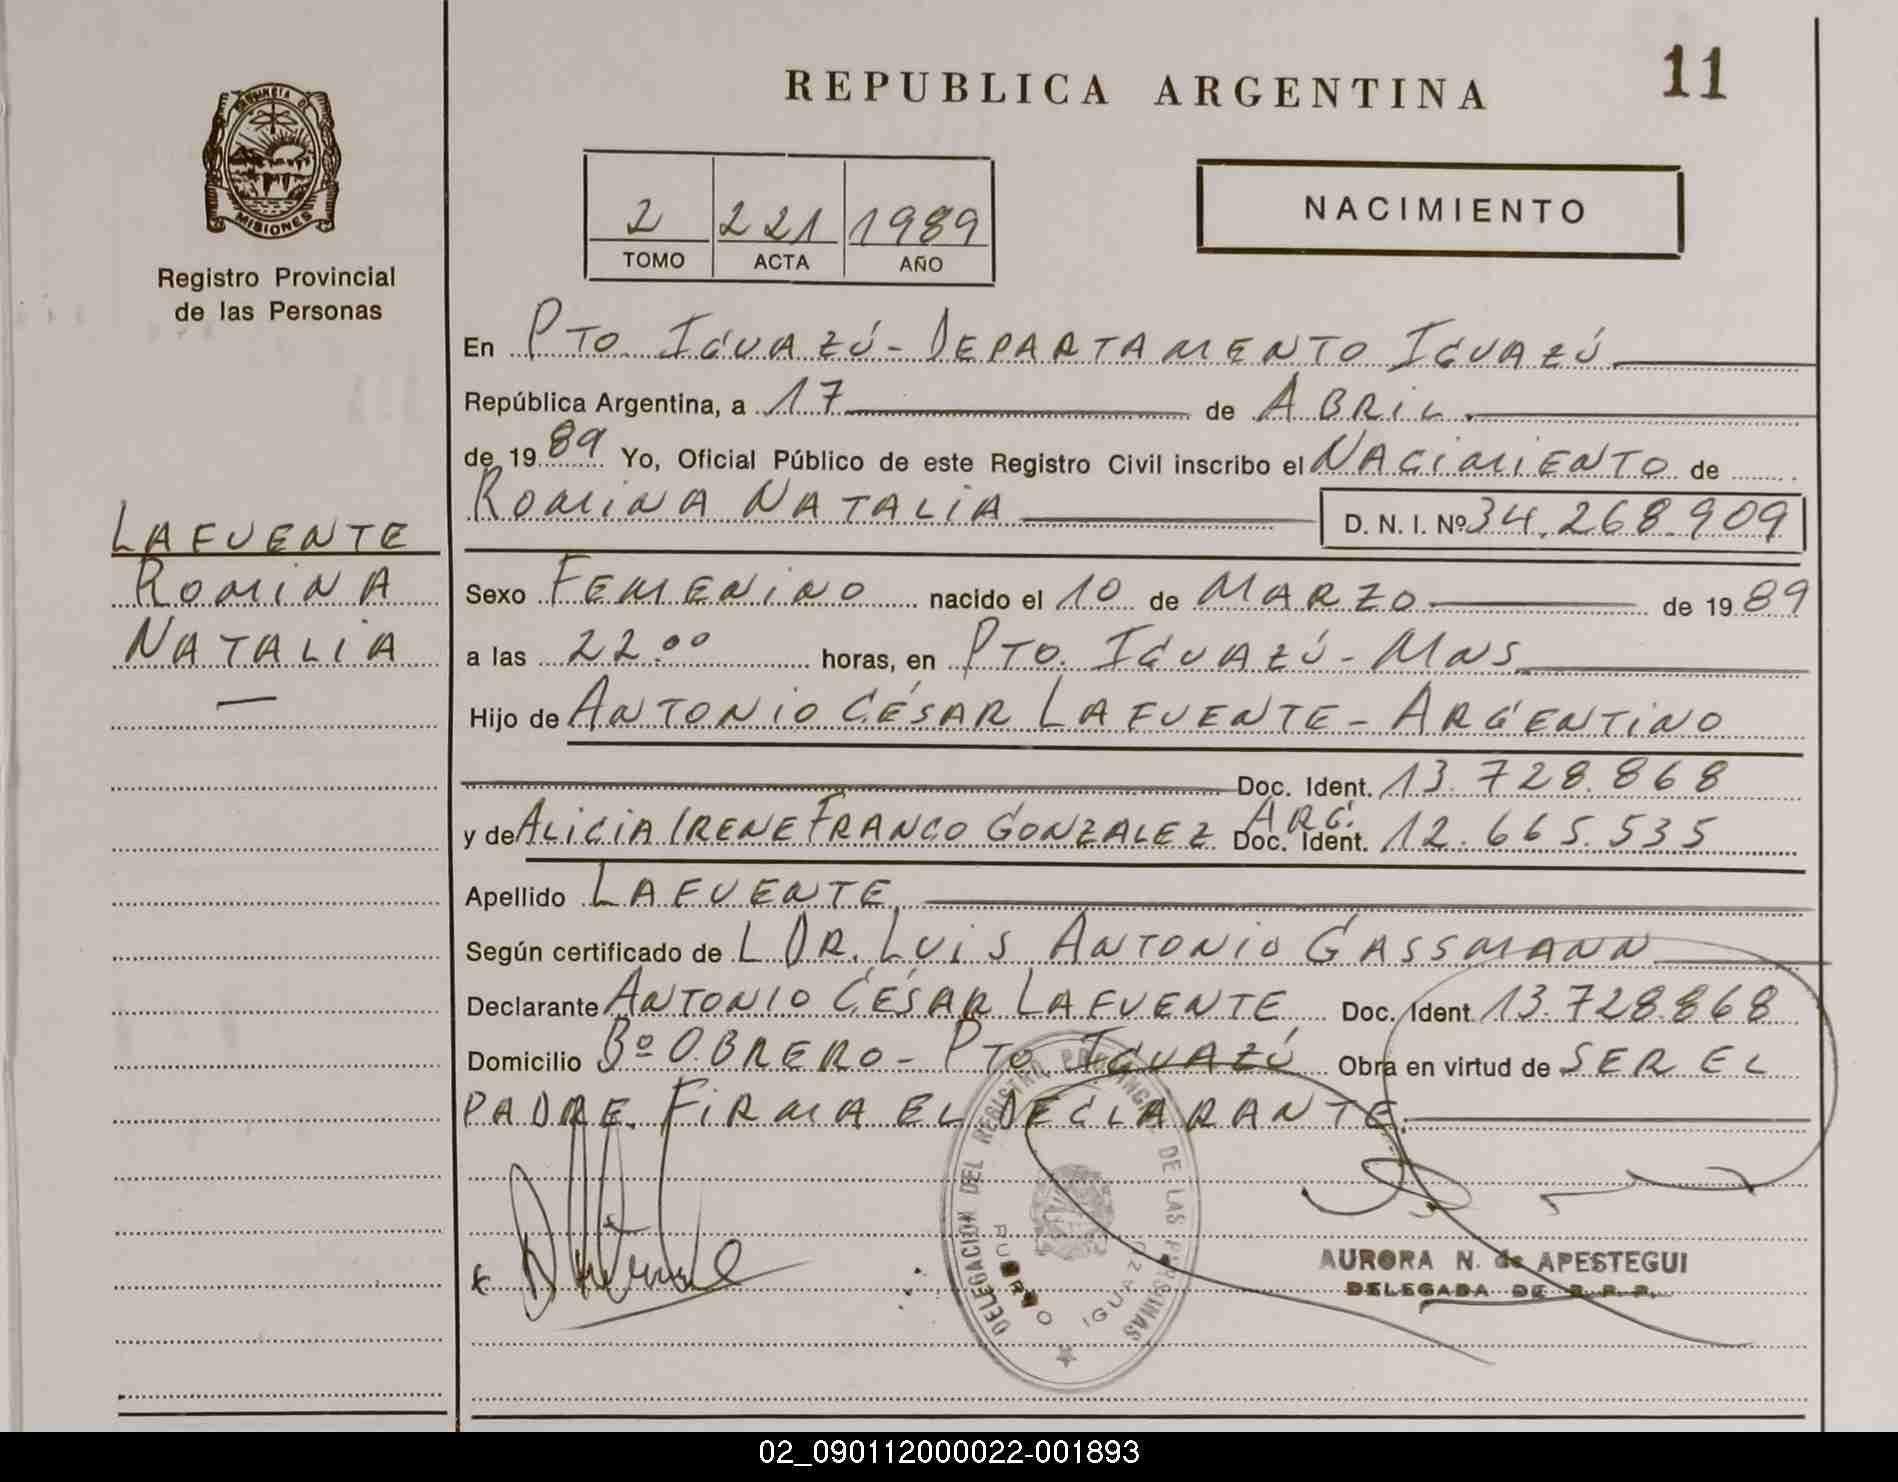 REPUBLICA ARGENTINA
11
PROVINCIA DE
MISIONES
Registro Provincial
de las Personas
2 221 1989
TOMO ACTA AÑO
NACIMIENTO
En PTO. IGUAZÚ - DEPARTAMENTO IGUAZÚ
República Argentina, a 17 de ABRIL
de 19 89 Yo, Oficial Público de este Registro Civil inscribo el NACIMIENTO de
ROMINA NATALIA D. N. I. Nº 34.268.909
LAFUENTE
ROMINA
NATALIA
Sexo FEMENINO nacido el 10 de MARZO de 19 89
a las 22.00 horas, en PTO. IGUAZÚ - MNS
Hijo de ANTONIO CÉSAR LAFUENTE - ARGENTINO
Doc. Ident. 13.728.868
y de ALICIA IRENE FRANCO GONZALEZ ARG. Doc. Ident. 12.665.535
Apellido LAFUENTE
Según certificado de L DR. LUIS ANTONIO GASSMANN
Declarante ANTONIO CÉSAR LAFUENTE Doc. Ident 13.728.868
Domicilio Bº OBRERO - PTO IGUAZÚ Obra en virtud de SER EL
PADRE. FIRMA EL DECLARANTE.
DELEGACION DEL REGISTRO PROVINCIAL DE LAS PERSONAS
PUERTO IGUAZU
AURORA N. de APESTEGUI
DELEGADA DE R. P. P.
02_090112000022-001893